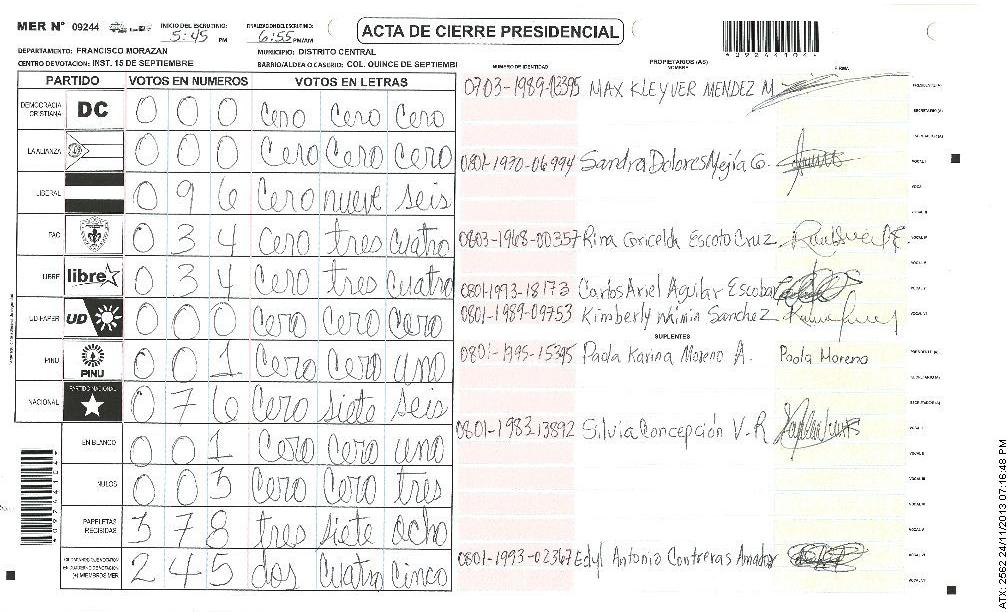 MER N° 09244
INICIO DEL ESCRUTINIO: 5:45 PM
FINALIZACION DEL ESCRUTINIO: 6:55 PM/AM
ACTA DE CIERRE PRESIDENCIAL
DEPARTAMENTO: FRANCISCO MORAZAN
MUNICIPIO: DISTRITO CENTRAL
CENTRO DE VOTACION: INST. 15 DE SEPTIEMBRE
BARRIO/ALDEA O CASERIO: COL. QUINCE DE SEPTIEMBI
PARTIDO VOTOS EN NUMEROS VOTOS EN LETRAS
NUMERO DE IDENTIDAD PROPIETARIOS (AS) NOMBRE FIRMA
DEMOCRACIA CRISTIANA DC 0 0 0 Cero Cero Cero
LA ALIANZA 0 0 0 Cero Cero Cero
LIBERAL 0 9 6 Cero nueve seis
PAC 0 3 4 Cero tres cuatro
LIBRE libre 0 3 4 Cero tres cuatro
UD/FAPER UD 0 0 0 Cero Cero Cero
PINU PINU 0 0 1 Cero Cero uno
NACIONAL PARTIDO NACIONAL 0 7 6 Cero siete seis
EN BLANCO 0 0 1 Cero Cero uno
NULOS 0 0 3 Cero Cero tres
PAPELETAS RECIBIDAS 3 7 8 tres siete ocho
(+) MIEMBROS MER 2 4 5 dos cuatro cinco
MAX KLEYVER MENDEZ M
PRESIDENTE (A)
SECRETARIO (A)
0801-1970-06994 Sandra Dolores Mejía G.
VOCAL I
0803-1968-00357 Rina Goricelda Escoto Cruz
0801-1993-18173 Carlos Ariel Aguilar Escobar
0801-1989-09753 Kimberly Sanchez
SUPLENTES
0801-1995-15395 Paola Karina Moreno A. Paola Moreno
PRESIDENTE (A)
SECRETARIO (A)
0801-1983 13892 Silvia Concepción V.R
0801-1993-02367 Antonia Contreras Amador
ATX: 2562 24/11/2013 07:16:48 PM